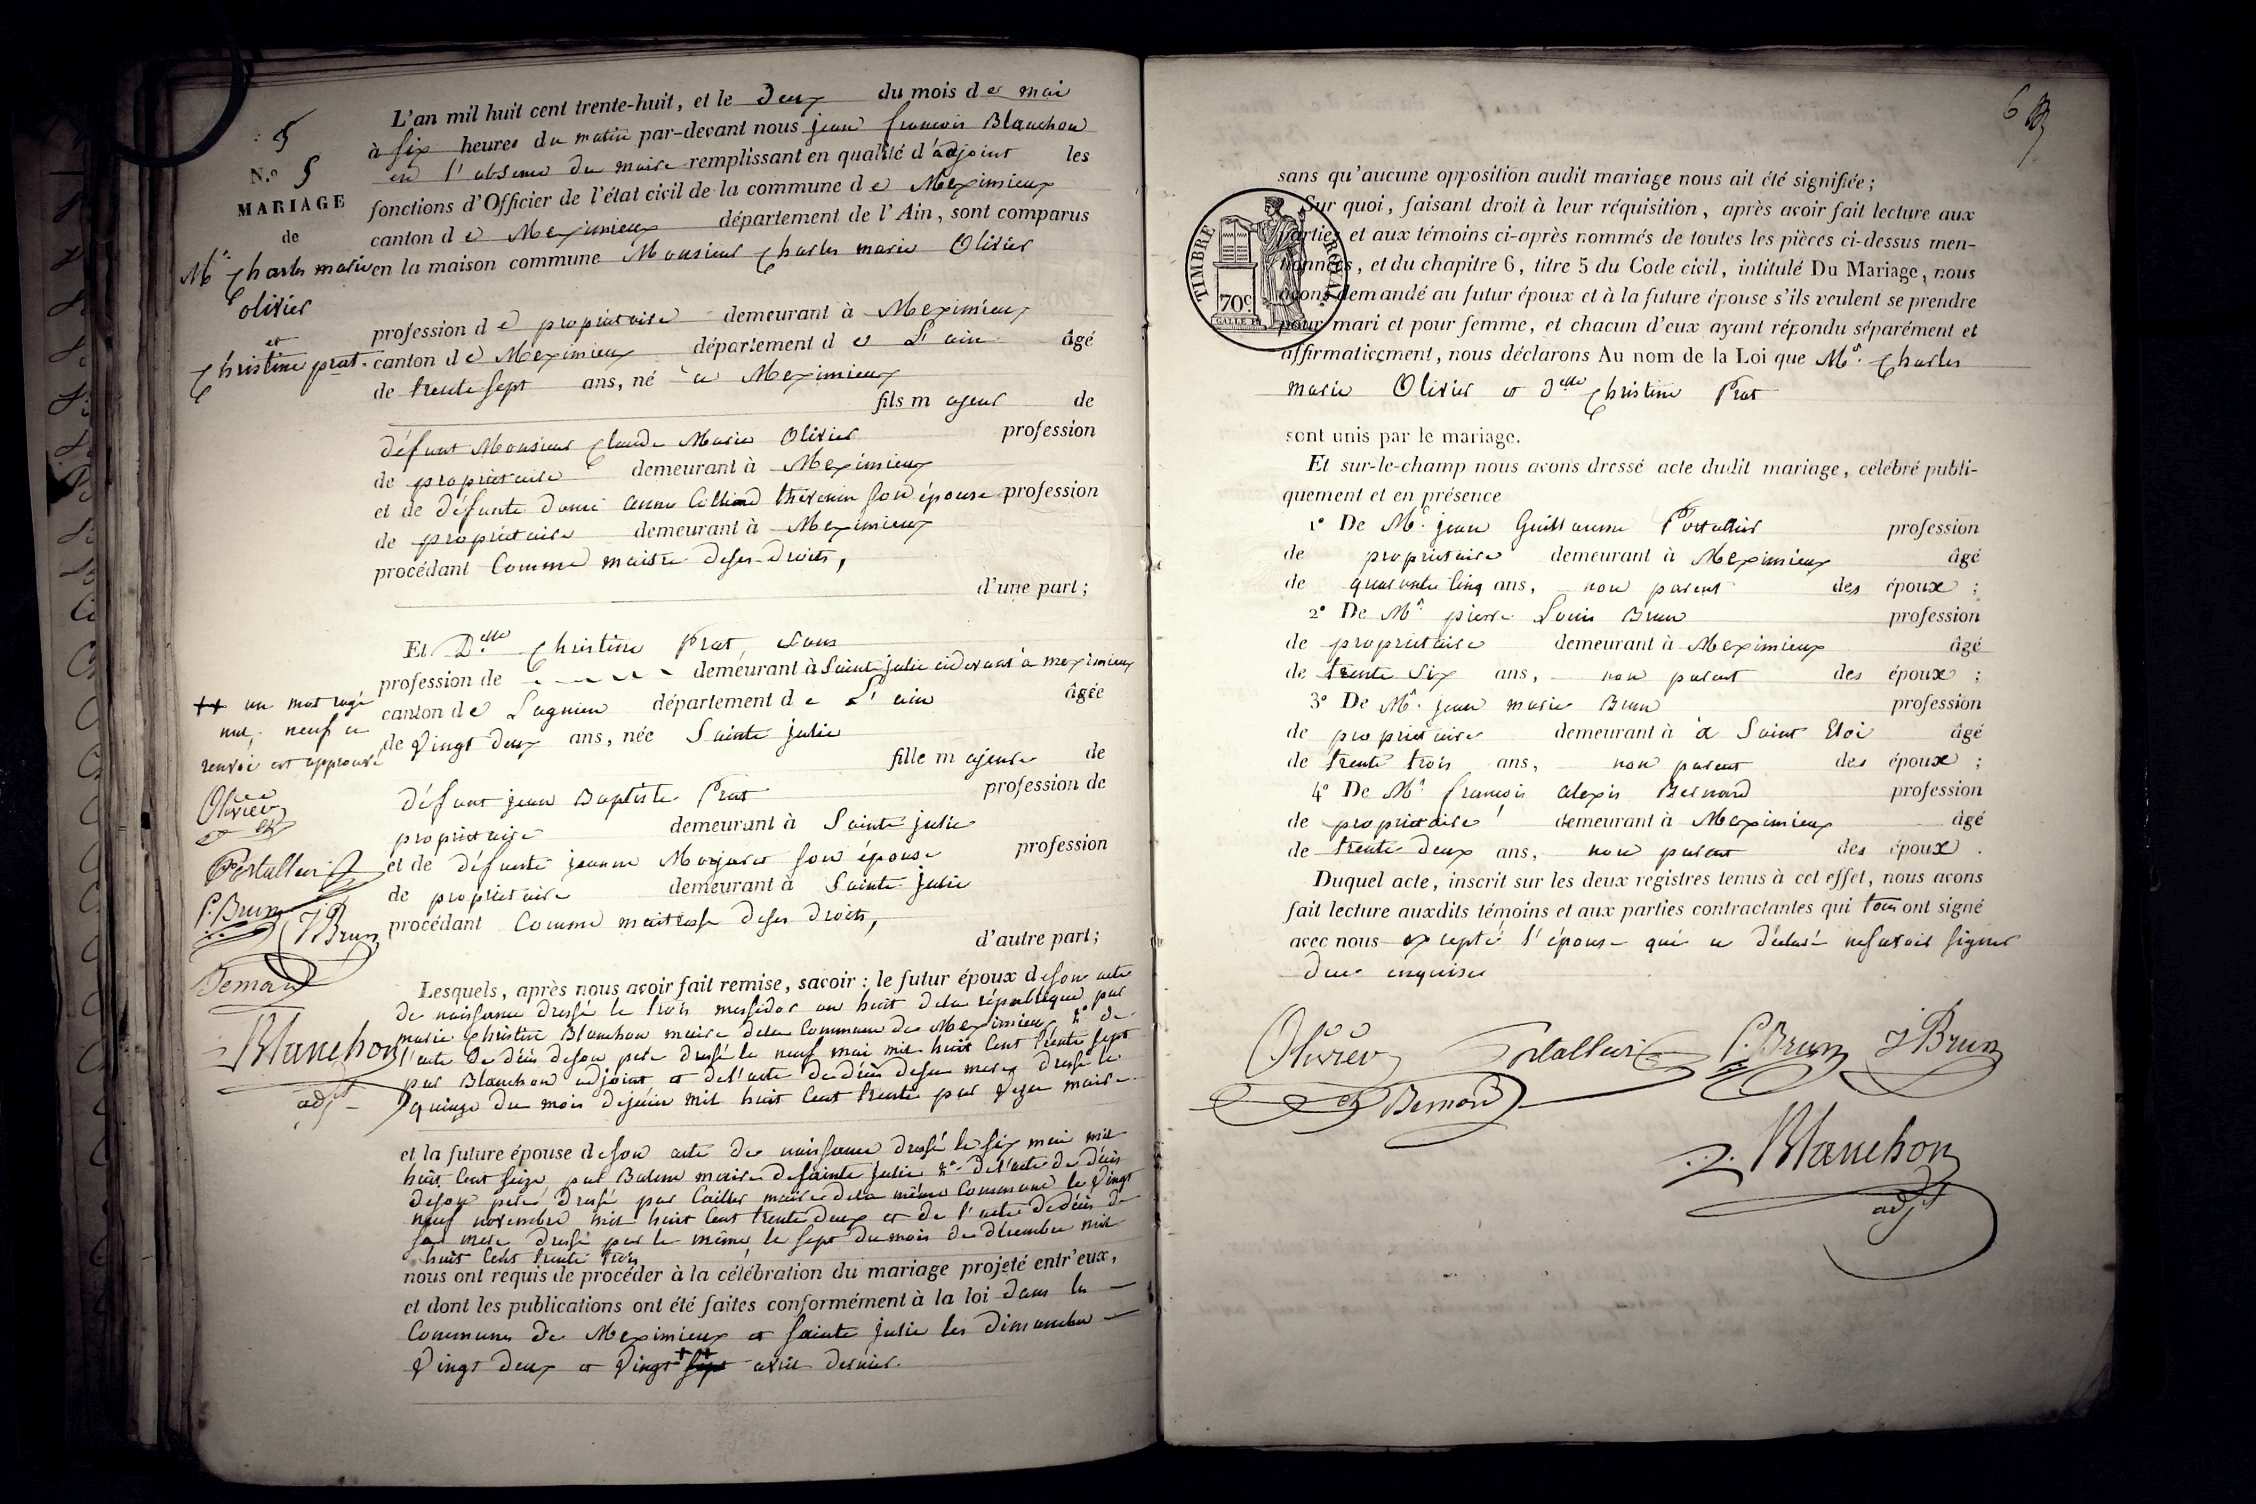 5
N.o 5
MARIAGE
de
Mr Charles marie
olivier
et
Christine prat.
L'an mil huit cent trente-huit, et le Deux du mois de mai
à six heures du matin par-devant nous jean francois Blanchon
en l'absence du maire remplissant en qualité d'adjoint les
fonctions d'Officier de l'état civil de la commune de Meximieux
canton de Meximieux département de l'Ain, sont comparus
en la maison commune Monsieur Charles marie Olivier
profession de proprietaire demeurant à Meximieux
canton de Meximieux département de L'ain âgé
de trente sept ans, né à Meximieux
fils majeur de
défunt Monsieur Claude Marie Olivier profession
de propriétaire demeurant à Meximieux
et de défunte dame anne thevenin son épouse profession
de propriétaire demeurant à Meximieux
procédant Comme maitre deses droits,
d'une part;
Et Delle Christine Prat, sans
profession de demeurant à Sainte julie cidevant à meximieux
canton de Lagnieu département de L'ain âgée
de Vingt deux ans, née Sainte julie
fille majeure de
défunt jean Baptiste Prat profession de
propriétaire demeurant à Sainte julie
et de défunte jeanne son épouse profession
de propriétaire demeurant à Sainte julie
procédant Comme maitresse deses droits,
d'autre part;
Lesquels, après nous avoir fait remise, savoir: le futur époux deson acte
de naissance dressé le trois messidor an huit dela république par
marie Christine Blanchon maire dela Commune de Meximieux 2o de
l'acte de décès deson père dressé le neuf mai mil huit Cent trente sept
par Blanchon adjoint et del'acte de décès desa mere dressé le
quinze du mois dejuin mil huit Cent trente par maire
et la future épouse deson acte de naissance dressé le six mai mil
huit Cent seize par maire desainte julie 2o del'acte de décès
deson père dressé par Caillet maire dela même Commune le Vingt
neuf novembre mil huit Cent trente deux et de l'acte de décès de
sa mere dressé par le même le sept du mois de décembre mil
huit Cent trente trois
nous ont requis de procéder à la célébration du mariage projeté entr'eux,
et dont les publications ont été faites conformément à la loi dans les
Communes de Meximieux et Sainte julie les dimanches
Vingt deux et Vingt ++ sept avril dernier.
++ un mot rayé
nul, neuf en
renvoi est approuvé
Olivier
Portallier
P. Brun
J Brun
Bernard
Blanchon
adjt
6
TIMBRE ROYAL
70c
sans qu'aucune opposition audit mariage nous ait été signifiée;
Sur quoi, faisant droit à leur réquisition, après avoir fait lecture aux
parties et aux témoins ci-après nommés de toutes les pièces ci-dessus men-
tionnées, et du chapitre 6, titre 5 du Code civil, intitulé Du Mariage, nous
avons demandé au futur époux et à la future épouse s'ils veulent se prendre
pour mari et pour femme, et chacun d'eux ayant répondu séparément et
affirmativement, nous déclarons Au nom de la Loi que Mr. Charles
marie Olivier et Delle Christine Prat
sont unis par le mariage.
Et sur-le-champ nous avons dressé acte dudit mariage, célébré publi-
quement et en présence
1o De Mr. jean Guillaume Portallier profession
de propriétaire demeurant à Meximieux âgé
de quarante cinq ans, non parent des époux;
2o De Mr. pierre Louis Brun profession
de propriétaire demeurant à Meximieux âgé
de trente six ans, non parent des époux;
3o De Mr. jean marie Brun profession
de propriétaire demeurant à à Saint Eloi âgé
de trente trois ans, non parent des époux;
4o De Mr francois alexis Bernard profession
de propriétaire demeurant à Meximieux âgé
de trente deux ans, non parent des époux.
Duquel acte, inscrit sur les deux registres tenus à cet effet, nous avons
fait lecture auxdits témoins et aux parties contractantes qui tous ont signé
avec nous excepté l'épouse qui a déclaré nesavoir signer
de ce enquise
Olivier Portallier P. Brun J Brun
Bernard
Blanchon
adjt